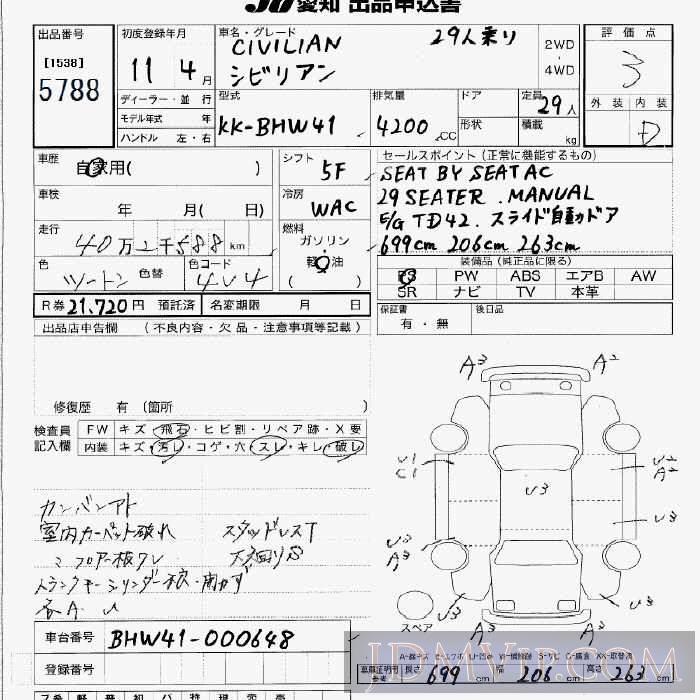 JU 愛知 出品申込書
出品番号
[1538]
5788
初度登録年月
11 4 月
車名・グレード
CIVILIAN 29人乗り
シビリアン
2WD
4WD
評価点
3
外装 内装
D
ディーラー・並行
モデル年式 年
ハンドル 左・右
型式
KK-BHW41
排気量
4200 .CC
ドア
形状
定員 29人
積載 kg
車歴 自家用( )
シフト 5F
セールスポイント (正常に機能するもの)
SEAT BY SEAT AC
29 SEATER. MANUAL
E/G TD42. スライド自動ドア
699cm 206cm 263cm
車検 年 月( 日)
冷房 WAC
走行
40万2千588 km
燃料
ガソリン
軽油
( )
色 ツートン 色替
色コード 4V4
装備品 (純正品に限る)
PS PW ABS エアB AW
SR ナビ TV 本革
R券 21,720円 預託済 名変期限 月 日
保証書
有・無
後日品
出品店申告欄 (不良内容・欠品・注意事項等記載)
修復歴 有 (箇所 )
検査員
記入欄
FW キズ・飛石・ヒビ割・リペア跡・X要
内装 キズ・汚レ・コゲ・穴・スレ・キレ・破レ
カンバンアト
室内カーペット破れ スタッドレスT
〃 フロアー板ワレ
トランクキーシリンダー不良・開かず
各A U
A3 A2
U1
C1
U2
A2
U3
U3
U2
A3
U3 U3
A3 A3
スペア
車台番号 BHW41-000648
登録番号
車庫証明用
参考
長さ 699 幅 206 高さ 263
JDMVIP.COM